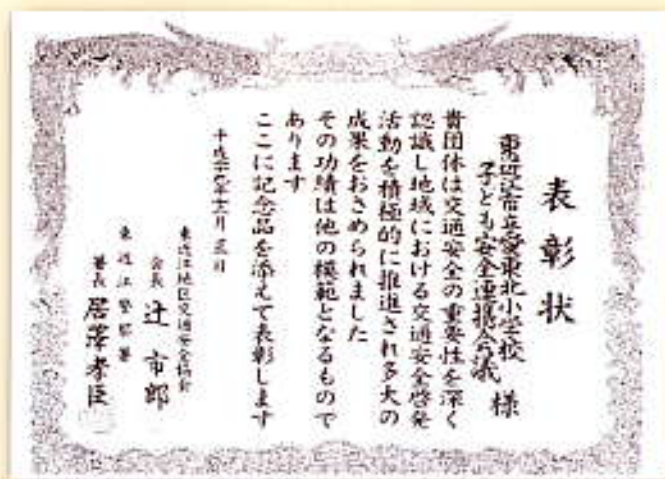 表彰状
東近江市立愛東北小学校
子ども安全連携会議 様
貴団体は交通安全の重要性を深く
認識し地域における交通安全啓発
活動を積極的に推進され多大の
成果をおさめられました
その功績は他の模範となるもので
あります
ここに記念品を添えて表彰します
東近江地区交通安全協会
会長 辻 市郎
東近江警察署
署長 居澤孝臣